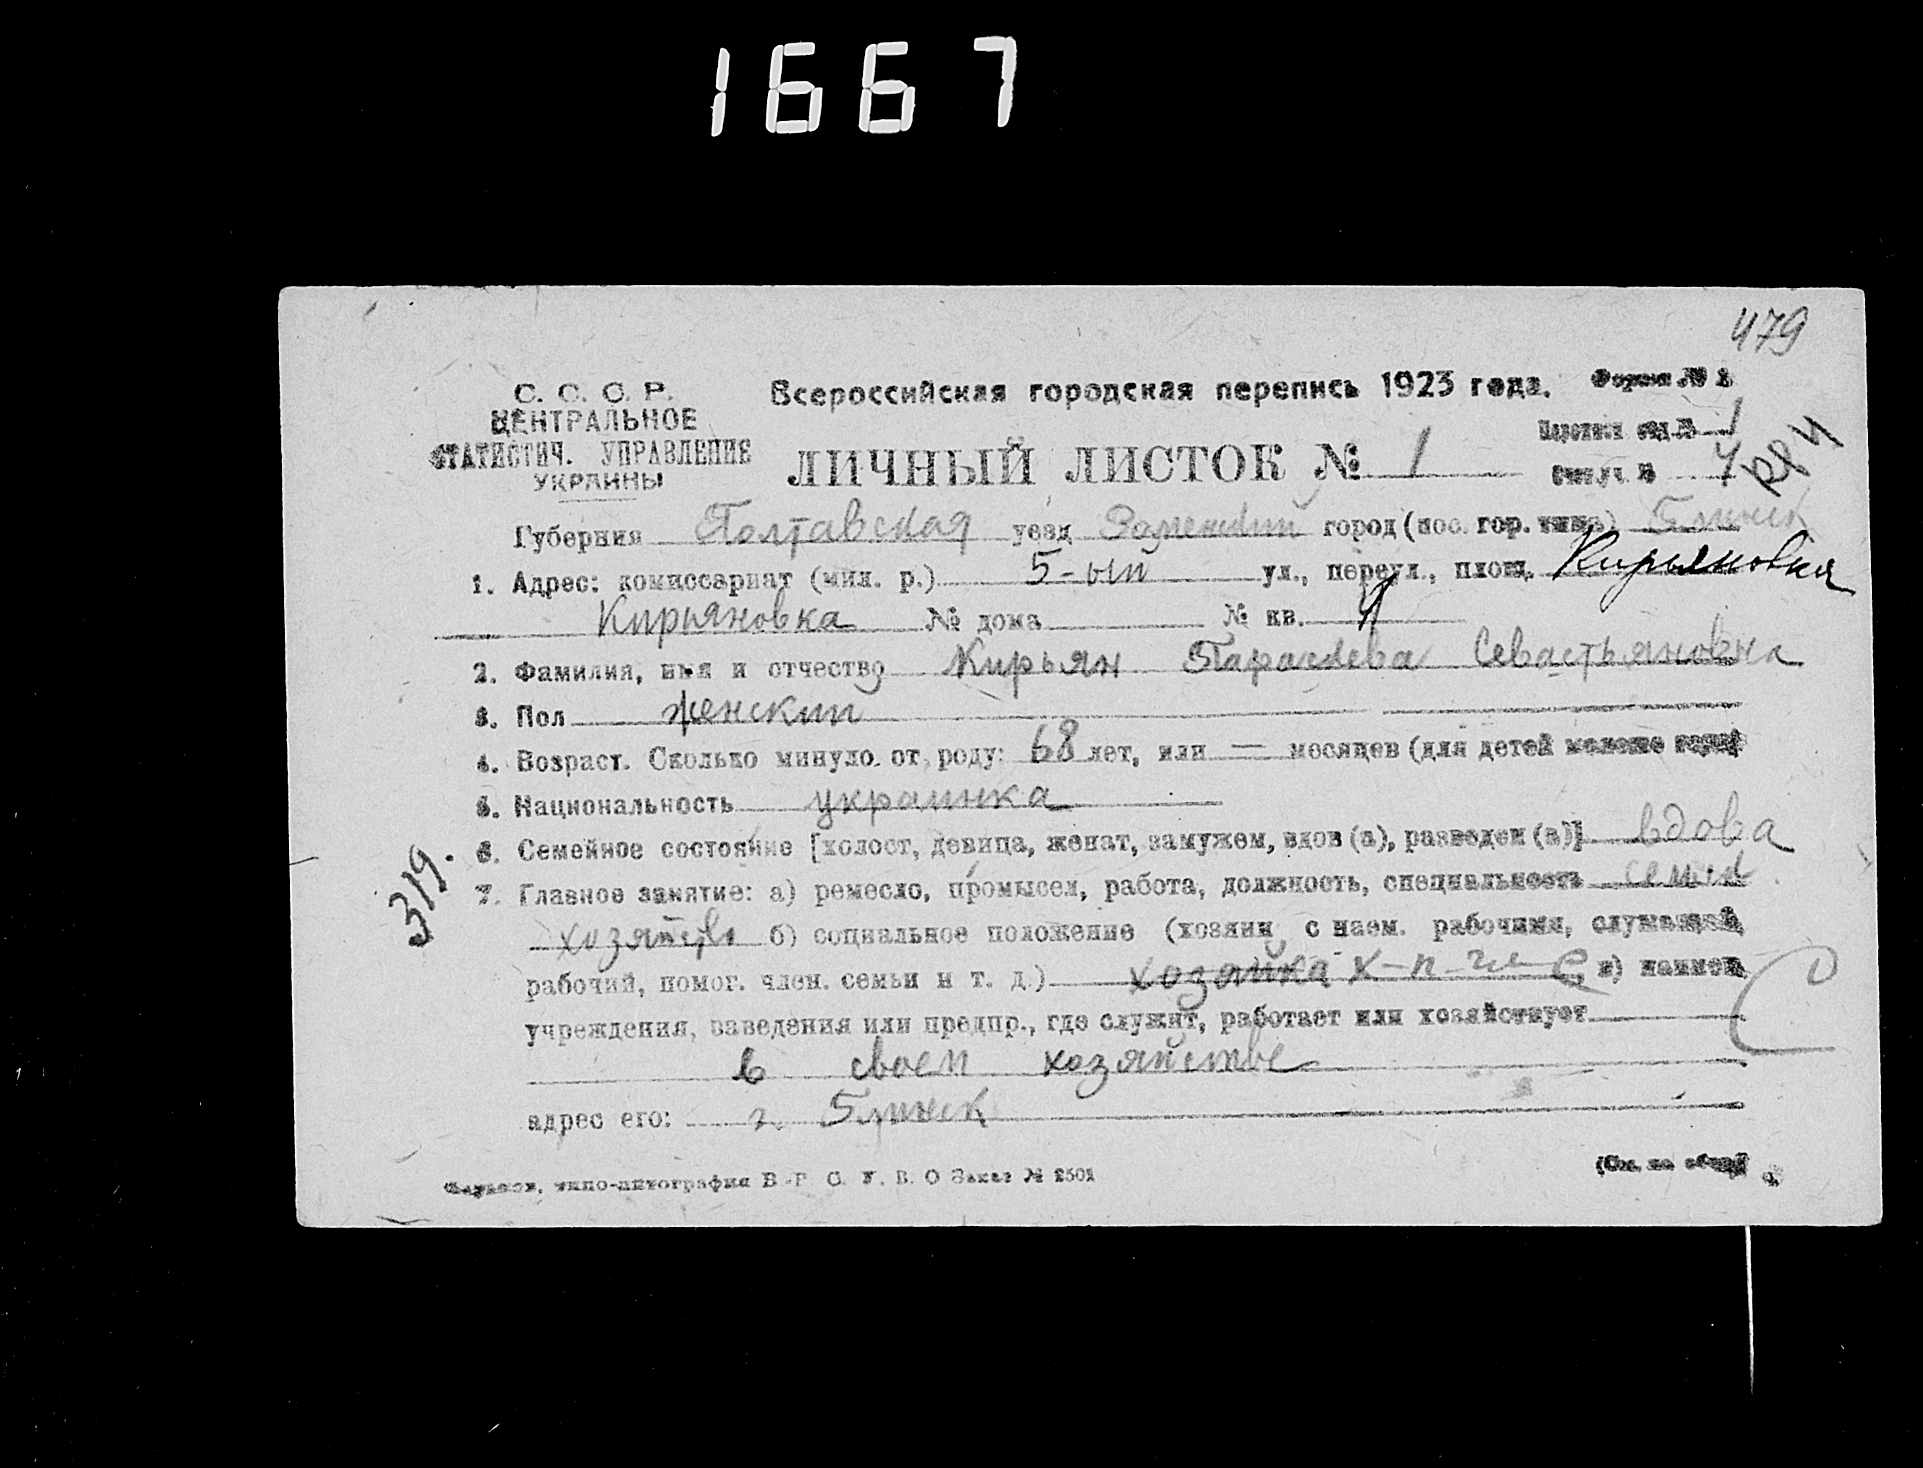 1667
479
С. С. С. Р.
ЦЕНТРАЛЬНОЕ
СТАТИСТИЧ. УПРАВЛЕНИЕ
УКРАИНЫ
Всероссийская городская перепись 1923 года.
Форма №
ЛИЧНЫЙ ЛИСТОК № 1
1
4
Губерния Полтавская уезд Роменский город (пос. гор. типа) Глинск
1. Адрес: комиссариат (мил. р.) 5-ый ул., переул., площ. Кирьяновка
Кирьяновка № дома № кв.
2. Фамилия, имя и отчество Кирьян Параскева Севастьяновна
3. Пол женский
4. Возраст. Сколько минуло от роду: 68 лет, или — месяцев (для детей моложе
5. Национальность украинка
6. Семейное состояние [холост, девица, женат, замужем, вдов (а), разведен (а)] вдова
319.
7. Главное занятие: а) ремесло, промысел, работа, должность, специальность
хозяйство б) социальное положение (хозяин с наем. рабочими, служащий,
рабочий, помог. член. семьи и т. д.) хозяйка х-п- в) наимен.
учреждения, заведения или предпр., где служит, работает или хозяйствует
в своем хозяйстве
адрес его: г. Глинск
типо-литография В. Р. С. У. В. О Заказ № 2501